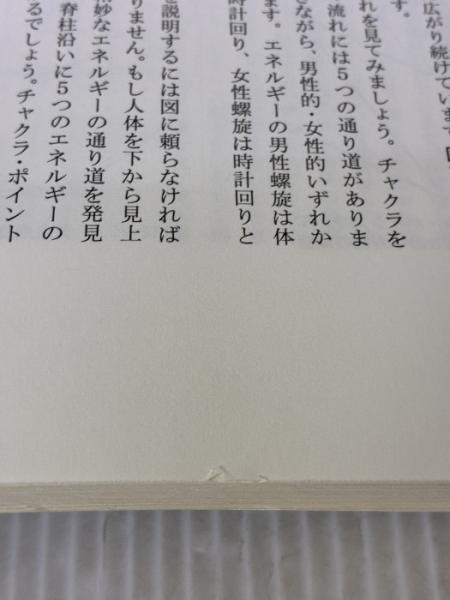 広がり続けています
す。
れを見てみましょう。チャクラを
流れには５つの通り道がありま
さながら、男性的・女性的いずれか
ます。エネルギーの男性螺旋は体
時計回り、女性螺旋は時計回りと
を説明するには図に頼らなければ
りません。もし人体を下から見上
妙なエネルギーの通り道を発見
脊柱沿いに５つのエネルギーの
るでしょう。チャクラ・ポイント